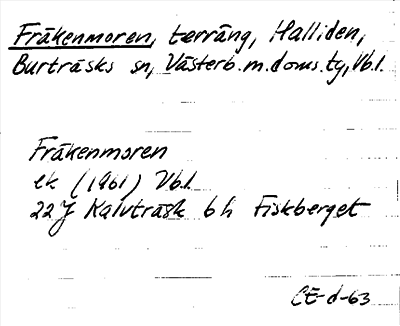 Fräkenmoren, terräng, Halliden,
Burträsks sn, Västerb.m.doms.tg, Vb.l.
Fräkenmoren
ek (1961) Vb.l.
22J Kalvträsk 6h Fiskberget
CE-d-63